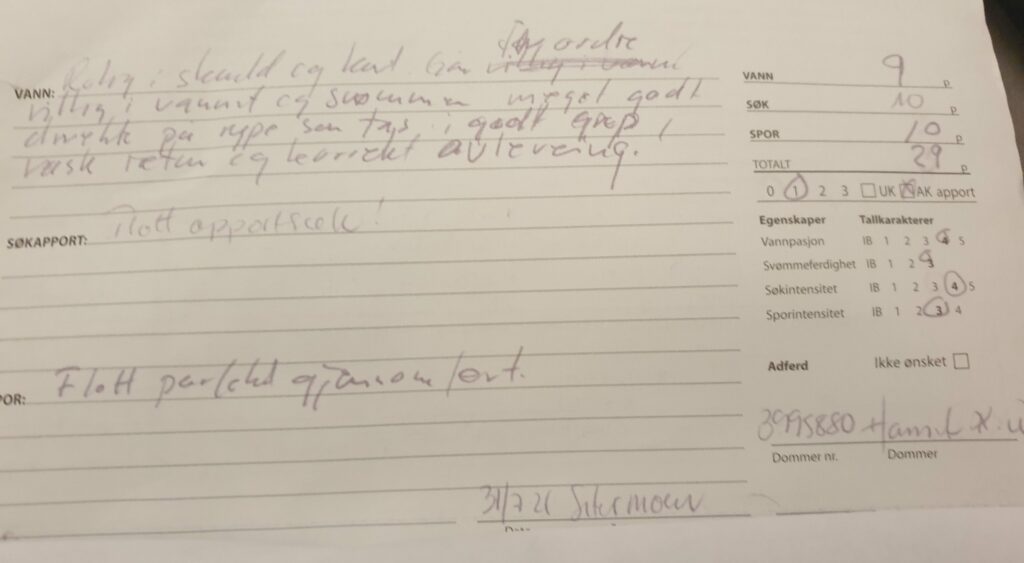 VANN: Rolig i skudd og kast. Går på ordre
villig i vannet og svømmer meget godt
direkte på rype som tas i godt grep,
rask retur og korrekt avlevering.
SØKAPPORT: Flott apportsøk!
POR: Flott perfekt gjennomført.
31/7 21
VANN 9 p
SØK 10 p
SPOR 10 p
TOTALT 29 p
0 1 2 3 UK AK apport
Egenskaper Tallkarakterer
Vannpasjon IB 1 2 3 4 5
Svømmeferdighet IB 1 2 3
Søkintensitet IB 1 2 3 4 5
Sporintensitet IB 1 2 3 4
Adferd Ikke ønsket
3995880
Dommer nr. Dommer